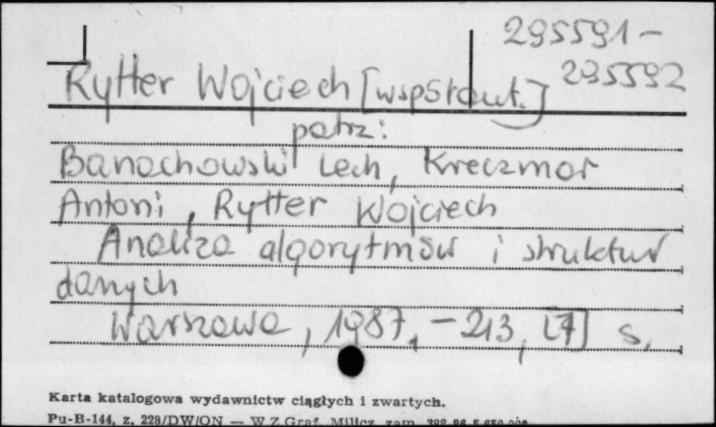 295591-
295592
Rytter Wojciech [współaut.]
patrz:
Banachowski Lech, Kreczmar
Antoni, Rytter Wojciech
Analiza algorytmów i struktur
danych
Warszawa, 1987, - 213, [7] s.
Karta katalogowa wydawnictw ciągłych i zwartych.
Pu-B-144, z. 228/DW/ON — W.Z.Graf. Milicz, zam.